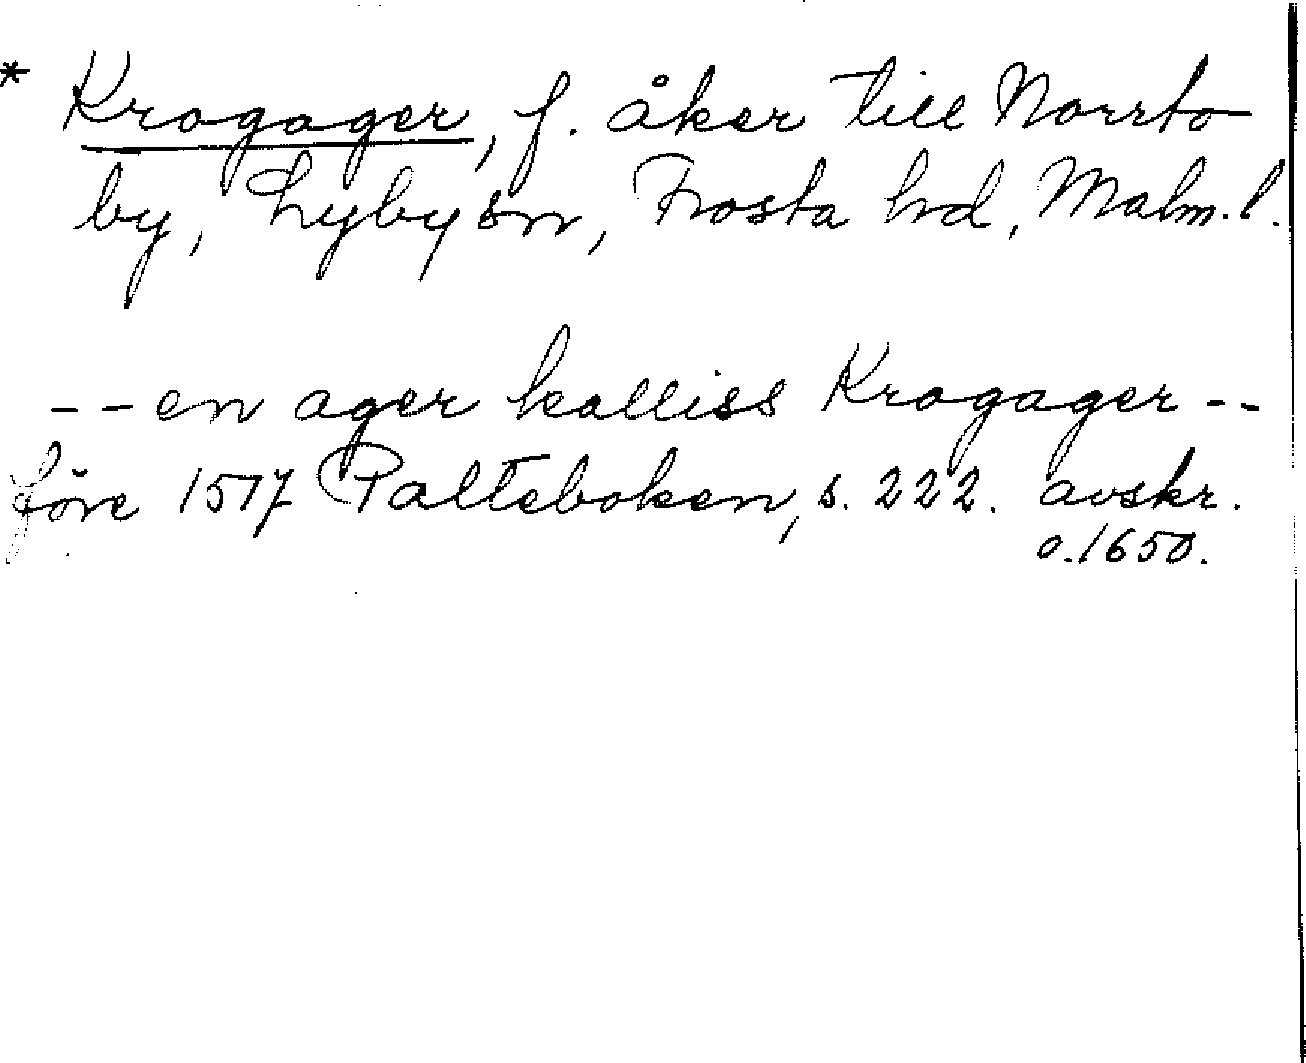 * Krogager, f. åker till Norrto
by, Lyby sn, Frosta hd, Malm. l.
-- en ager kalliss Krogager --
före 1517 Palteboken, s. 222. avskr.
o. 1650.